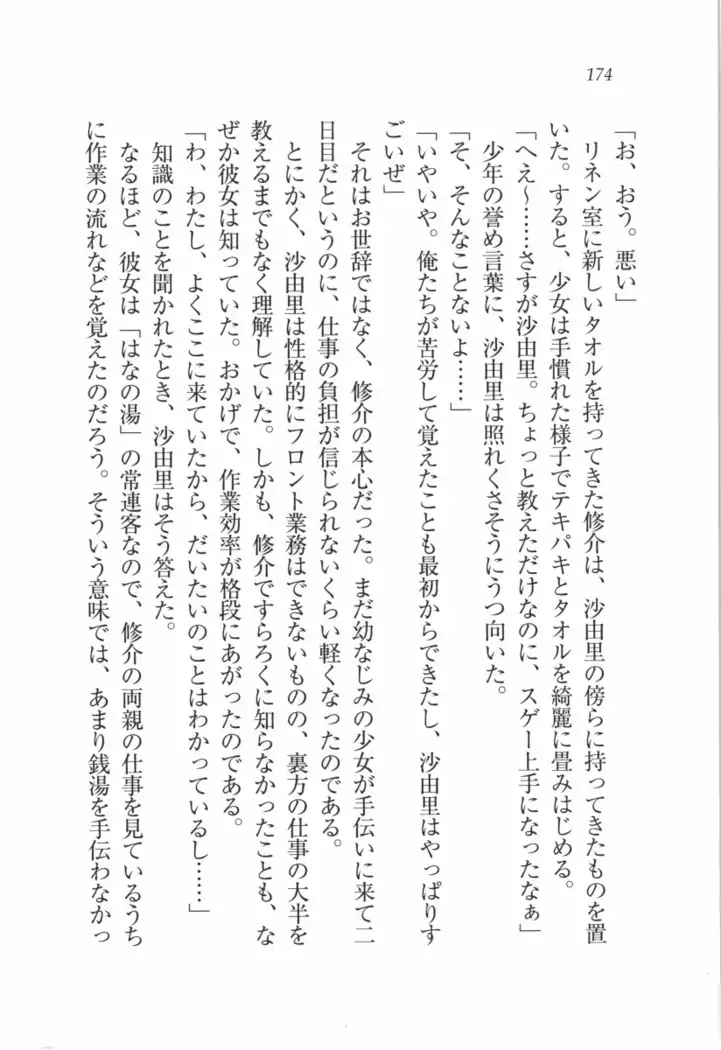 174
「お、おう。悪い」
リネン室に新しいタオルを持ってきた修介は、沙由里の傍らに持ってきたものを置
いた。すると、少女は手慣れた様子でテキパキとタオルを綺麗に畳みはじめる。
「へえ〜……さすが沙由里。ちょっと教えただけなのに、スゲー上手になったなぁ」
少年の誉め言葉に、沙由里は照れくさそうにうつ向いた。
「そ、そんなことないよ……」
「いやいや。俺たちが苦労して覚えたことも最初からできたし、沙由里はやっぱりす
ごいぜ」
それはお世辞ではなく、修介の本心だった。まだ幼なじみの少女が手伝いに来て二
日目だというのに、仕事の負担が信じられないくらい軽くなったのである。
とにかく、沙由里は性格的にフロント業務はできないものの、裏方の仕事の大半を
教えるまでもなく理解していた。しかも、修介ですらろくに知らなかったことも、な
ぜか彼女は知っていた。おかげで、作業効率が格段にあがったのである。
「わ、わたし、よくここに来ていたから、だいたいのことはわかっているし……」
知識のことを聞かれたとき、沙由里はそう答えた。
なるほど、彼女は「はなの湯」の常連客なので、修介の両親の仕事を見ているうち
に作業の流れなどを覚えたのだろう。そういう意味では、あまり銭湯を手伝わなかっ